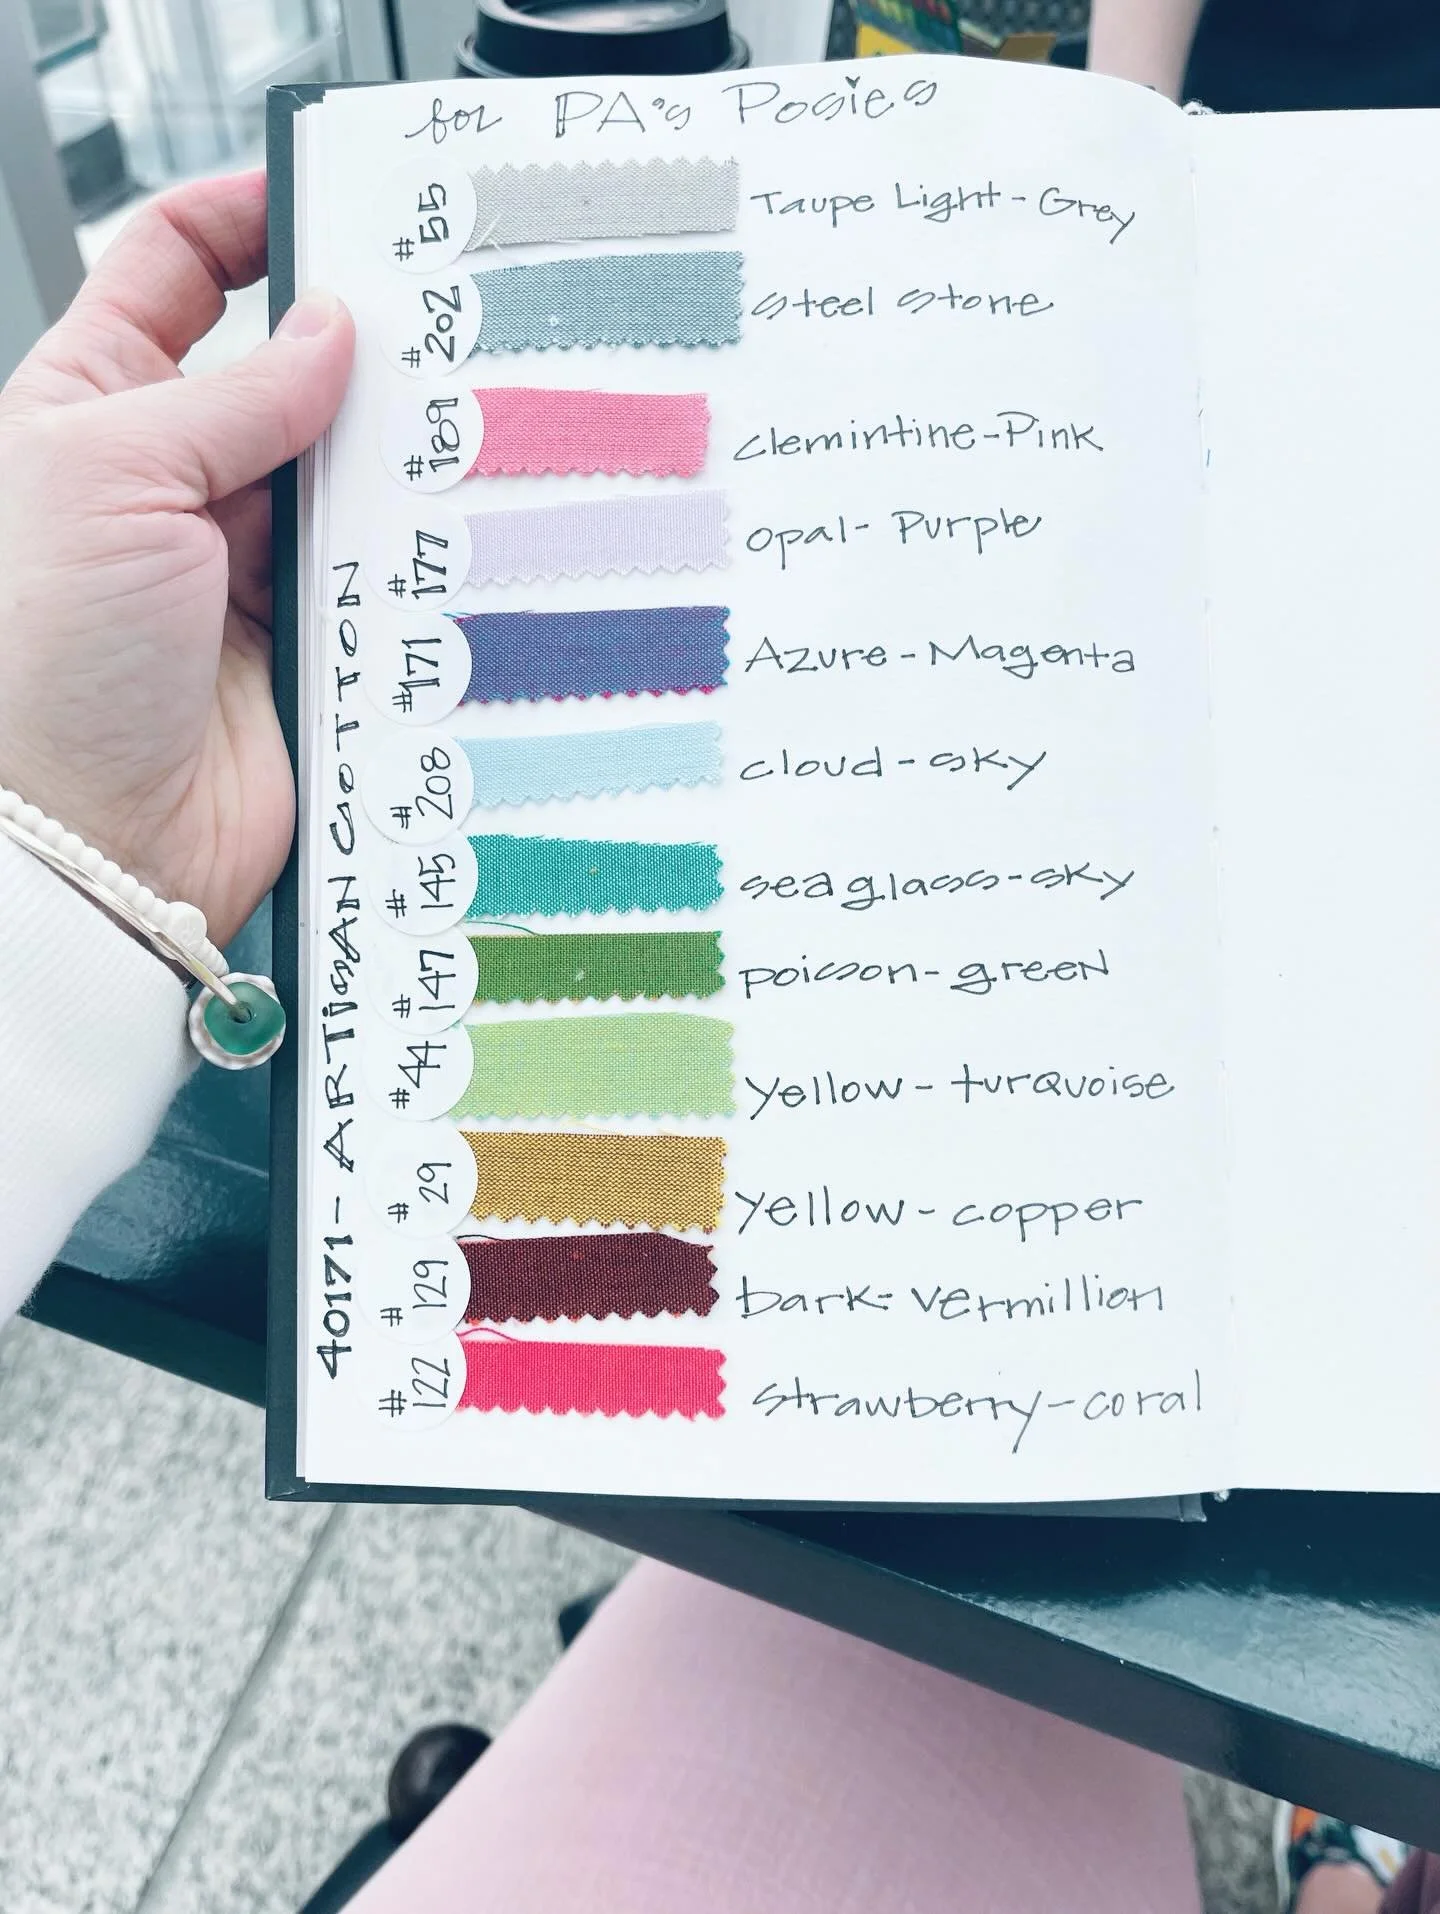 for PA's Posies
#55 Taupe Light-Grey
#202 Steel Stone
#189 clemintine-Pink
#177 opal-Purple
#171 Azure-Magenta
#208 cloud-sky
#145 sea glass-sky
#147 poison-green
#44 yellow-turquoise
#29 yellow-copper
#129 bark-vermillion
#122 strawberry-coral
40171-ARTiSAN COTTON